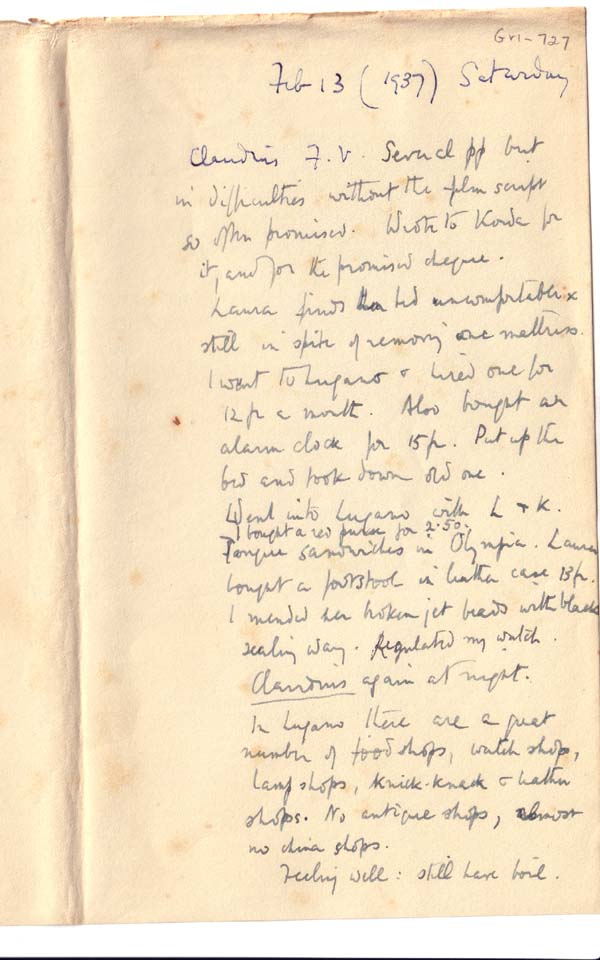 Gr1-727
Feb 13 (1937) Saturday
Claudius F.V. Several pp but
in difficulties without the film script
so often promised. Wrote to Korda for
it, and for the promised cheque.
Laura finds bed uncomfortable
still in spite of removing one mattress.
I went to Lugano & hired one for
12 fr a month. Also bought an
alarm clock for 15 fr. Put up the
bed and took down old one.
Went into Lugano with L & K.
I bought a red purse for 2.50.
Tongue sandwiches in Olympia. Laura
bought a footstool in leather case 13 fr.
I mended her broken jet beads with black
sealing wax. Regulated my watch.
Claudius again at night.
In Lugano there are a great
number of food shops, watch shops,
lamp shops, knick-knack & leather
shops. No antique shops, almost
no china shops.
Feeling well: still have boil.